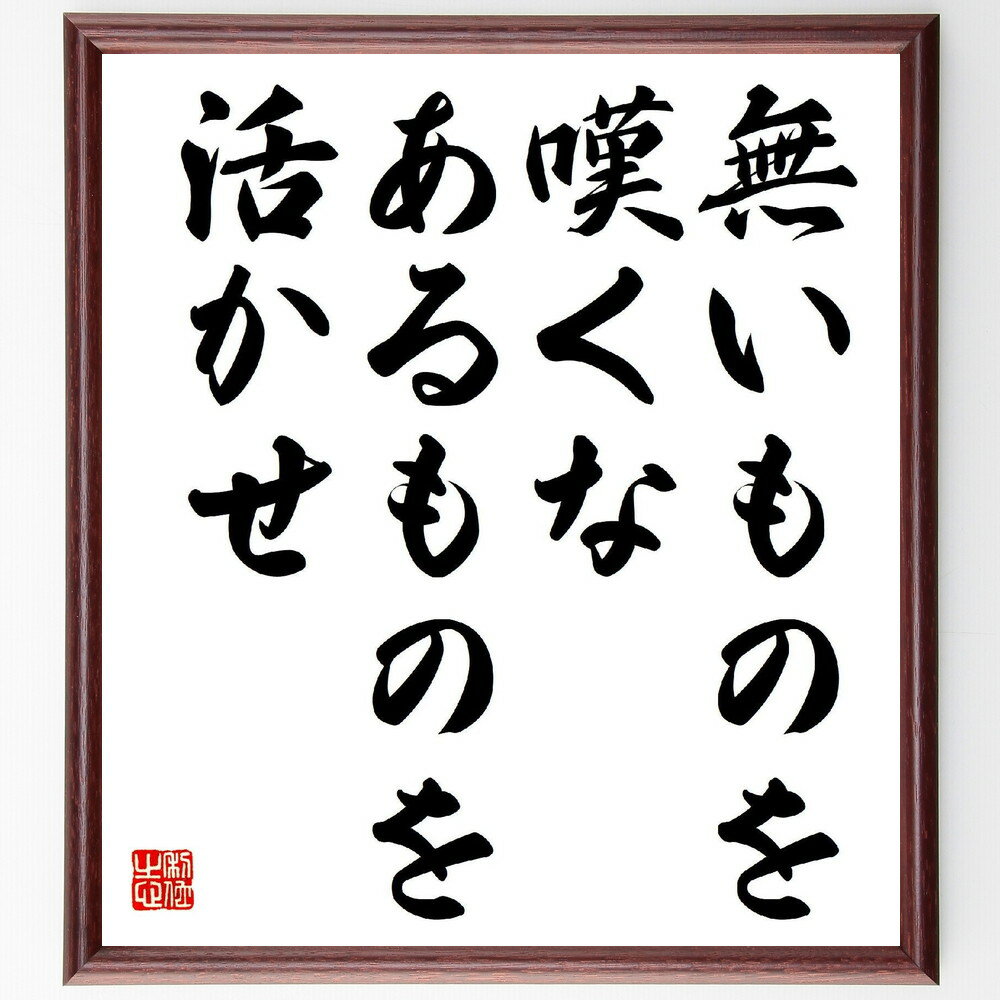 無いものを
嘆くな
あるものを
活かせ